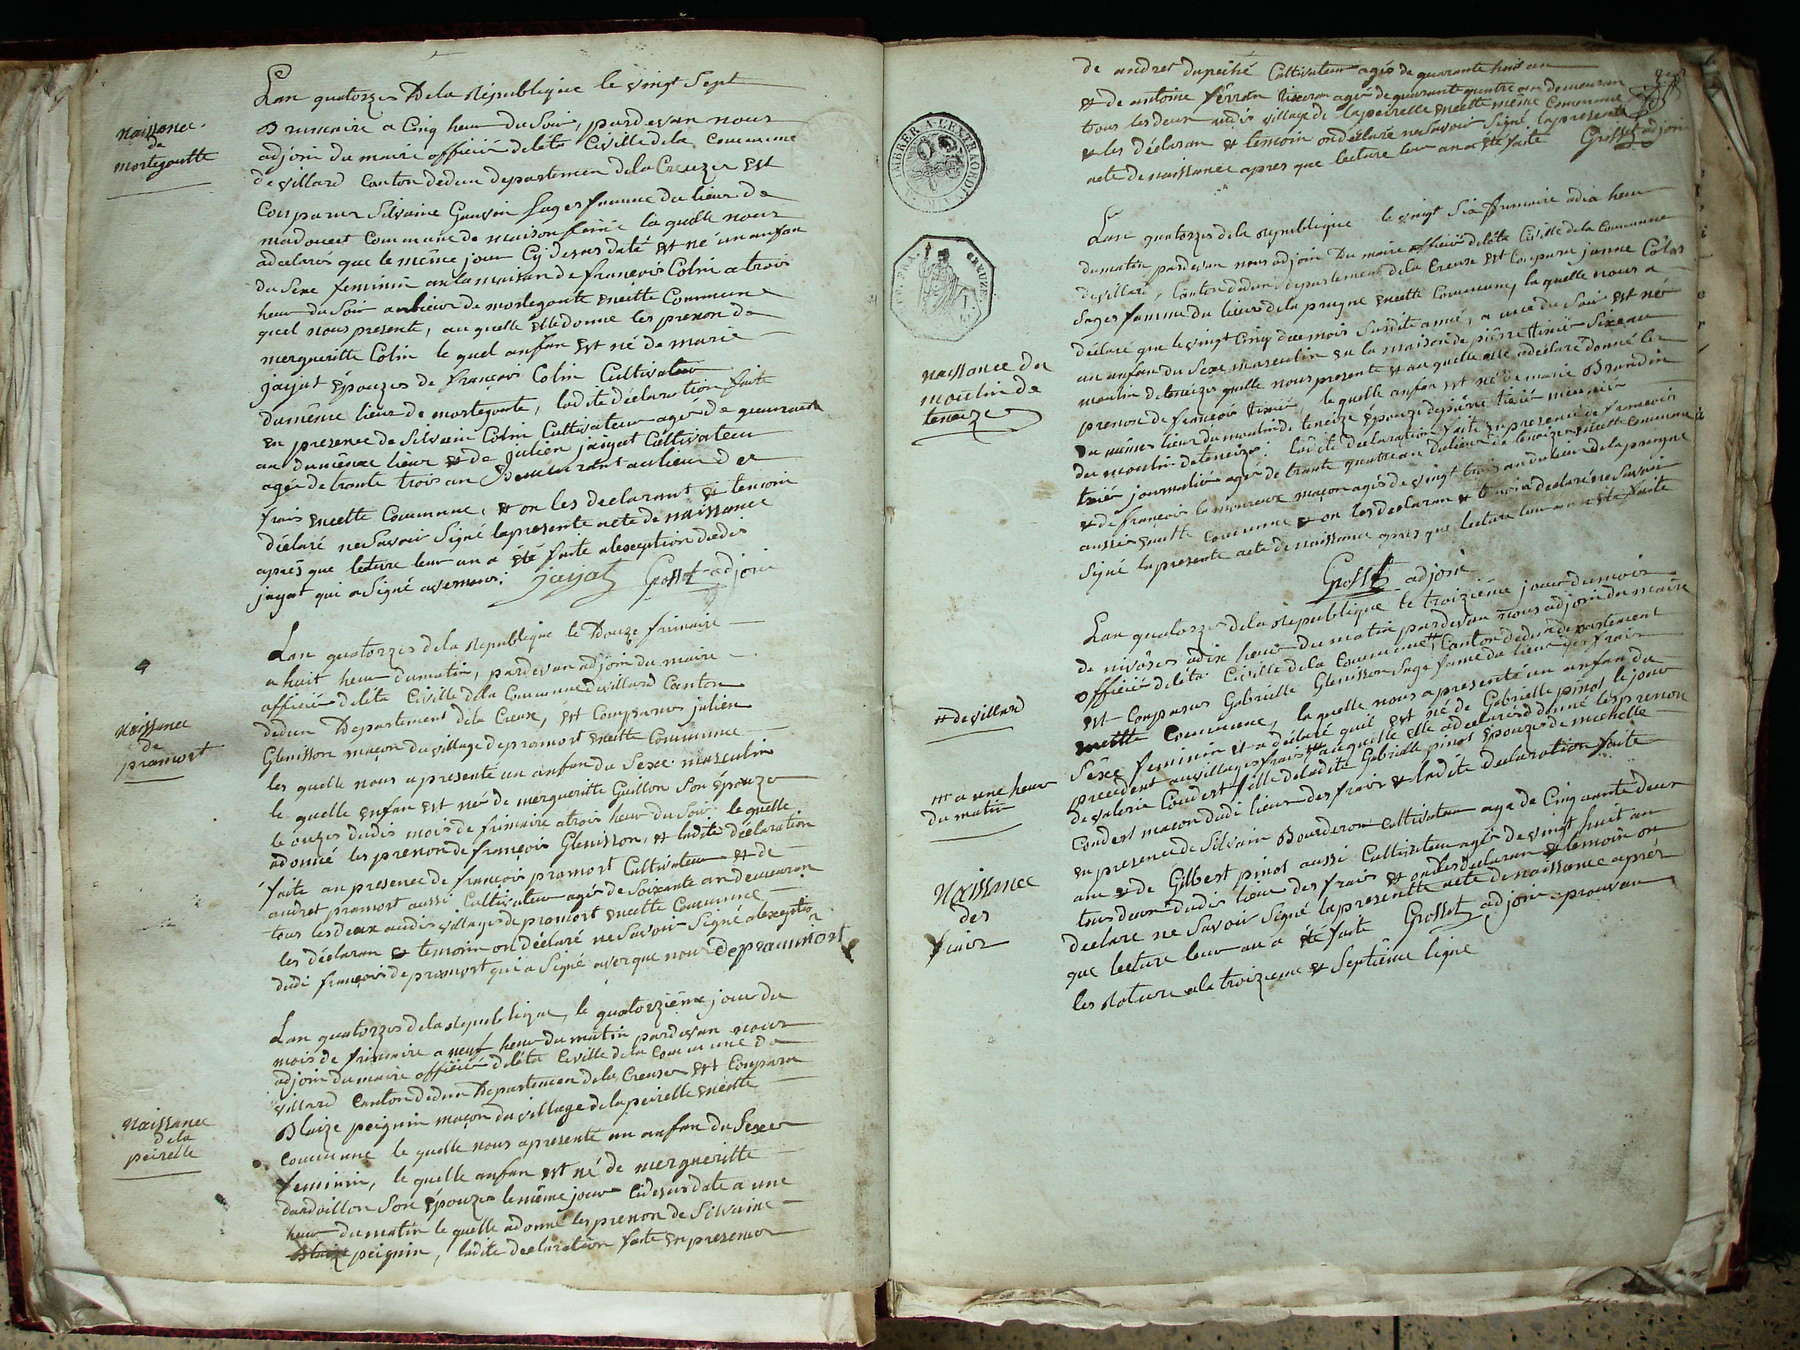 Naissance
de
mortegoutte
Lan quatorzes Dela République le vingt Sept
Brumaire a Cinq heur du Soir, pardevan nous
adjoin du maire officiié deléta Civille dela commune
devillard Canton dedun departemen dela Creuze est
Comparus Silvaine Gauvin Sages femme du lieux de
madouect Commune de maison feinie la quelle nous
adeclarés que le meme jour Cy desus daté est né un anfan
du Sexe feminin anlamaison de françois Colin a trois
heur du Soir aulieux de mortegoute enceitte Commune
quel nous presente, au quelle elledonne les prenon de
mergueritte Colin le quel anfan est né de marie
jayat épouzes de françois Colin Cultivateur
dumême lieux de mortegoute, ladite déclaration faite
en presence de Silvain Colin Cultivateur ages de quarante
an dumême lieux et de julien jaiyat Cultivateur
agés de trante trois an Demeurant aulieux des
frais enceitte Commune, et on les declarant et temoin
déclaré nesavoir Signé lapresente acte de naissance
aprés que lecture leur an a été faite alexception dudis
jayat qui a Signé avecnous. jayat Grosset adjoin
Naissance
de
pramort
Lan quatorzes dela République le Douze frimaire
a huit heur dumatin, pardevan adjoin du maire
officiié deléta Civille dela Commune devillard Canton
dedun Departement dela Creuse, est Comparus julien
Glenisson maçon du village depramort enceitte Commune
les quelle nous a presenté un anfan du Sexe masculin
le quelle enfan est né de merguerite Guillon Son épouze
le onzes dudis mois de frimaire atrois heur du Soir le quelle
adonné les prenon de françois Glenisson, et ladite déclaration
faite an presence de françois pramort Cultivateur et de
andret pramort aussi Cultivateur agés de Soixante an demeuran
tous les deux audis village de pramort enceitte Commune
les déclaran et temoin on déclaré ne Savoir Signé alexception
dudi françois de pramort qui a Signé avecque nous Depraumort
Naissance
dela
peirelle
Lan quatorzes dela République, le quatorzième jour du
mois de frimaire a neuf heur du matin pardevan nous
adjoin du maire officiié deléta Civille dela commune de
villard Canton dedun Departemen dela Creuser est Comparu
Blaize peignin maçon du village dela peirelle enceitte
commune le quelle nous apresenté un anfan du Sexe
feminin, le quelle anfan est né de merguerite
dardvillon Son épouze lemême jour Cidesus daté a une
heur du matin le quelle adonné les prenon de Silvaine
Blaize peignin, ladite declaration faite en presence
de andret dupeiné Cultivateur agés de quarante huit an
et de antoine Périon tixeran agés de quarante quatre an demeuran
tous les deux audis village de lapeirelle enceitte même Commune
et les déclaran et temoin ondéclaré nesavoir Signé lapresente
acte de naissance apres que lecture leur an a été faite Grosset adjoin
TIMBRER A L'EXTRAORD.
CREUZE
naissance du
moulin de
teneize
Lan quatorzes dela République le vingt Six frimaire adix heur
dumatin pardevan nous adjoin Du maire officiié deléta Civille dela Commune
devillard, Canton dedun departement dela Creuse est Comparu janne Colas
Sages famme du lieux dela prugne enceitte Commune, la quelle nous a
déclaré que levingt Cinq due mois Susdite année, a une du Soir est né
un anfan du Sexe masculin en la maison de pierre tixié Sixeau
moulin deteneizes quelle nous presente et au quelle elle adéclaré donné les
prenon de françois tixié, le quelle anfan est né de marie Brandin
du mêmes lieux dumoulin de teneize épouze depierre tixié meunié
du moulin deteneize, ladite declaration faite enpresence de françois
tixié journalié agés de trante quatre an dulieux de teneize enceitte commune
et de françois lamoureux maçon agés de vingt trois an dulieux dela prugne
aussi enceitte Commune et on les declaran et temoin déclaré nesavoir
Signé lapresente acte de naissance apres que lecture leur an a été faite
Grosset adjoin
# devillard
## a une heur
du matin
Naissance
des
frais
Lan quatorzes dela République le troizième jour dumois
de nivôses adix heur du matin pardevan nous adjoin du maire
officiié deléta Civille dela Commune # Canton dedun departement
est Comparus Gabrielle Glenisson Sage fame du lieux des frais
enceitte Commune, la quelle nous a presenté un anfan du
Sexe feminin et a déclaré quil est né de Gabrielle pinot le jour
precedent auvillages frais ## auquelle elle adeclarés donné les prenon
de valerie Coudert fille deladite Gabrielle pinot épouzes de michelle
Coudert maçon dudi lieux des frais et ladite declaration faite
en presence de Silvain Bourderon Cultivateur age de Cinquante deux
ans et de Gilbert pinot aussi Cultivateur agés de vingt huit an
tous deux dudis lieux des frais et on les declaran et temoin on
déclare ne Savoir Signé lapresente acte de naissance aprés
que lecture leur an a été faite Grosset adjoin aprouvan
les Rature ala troizieme et Septième ligne